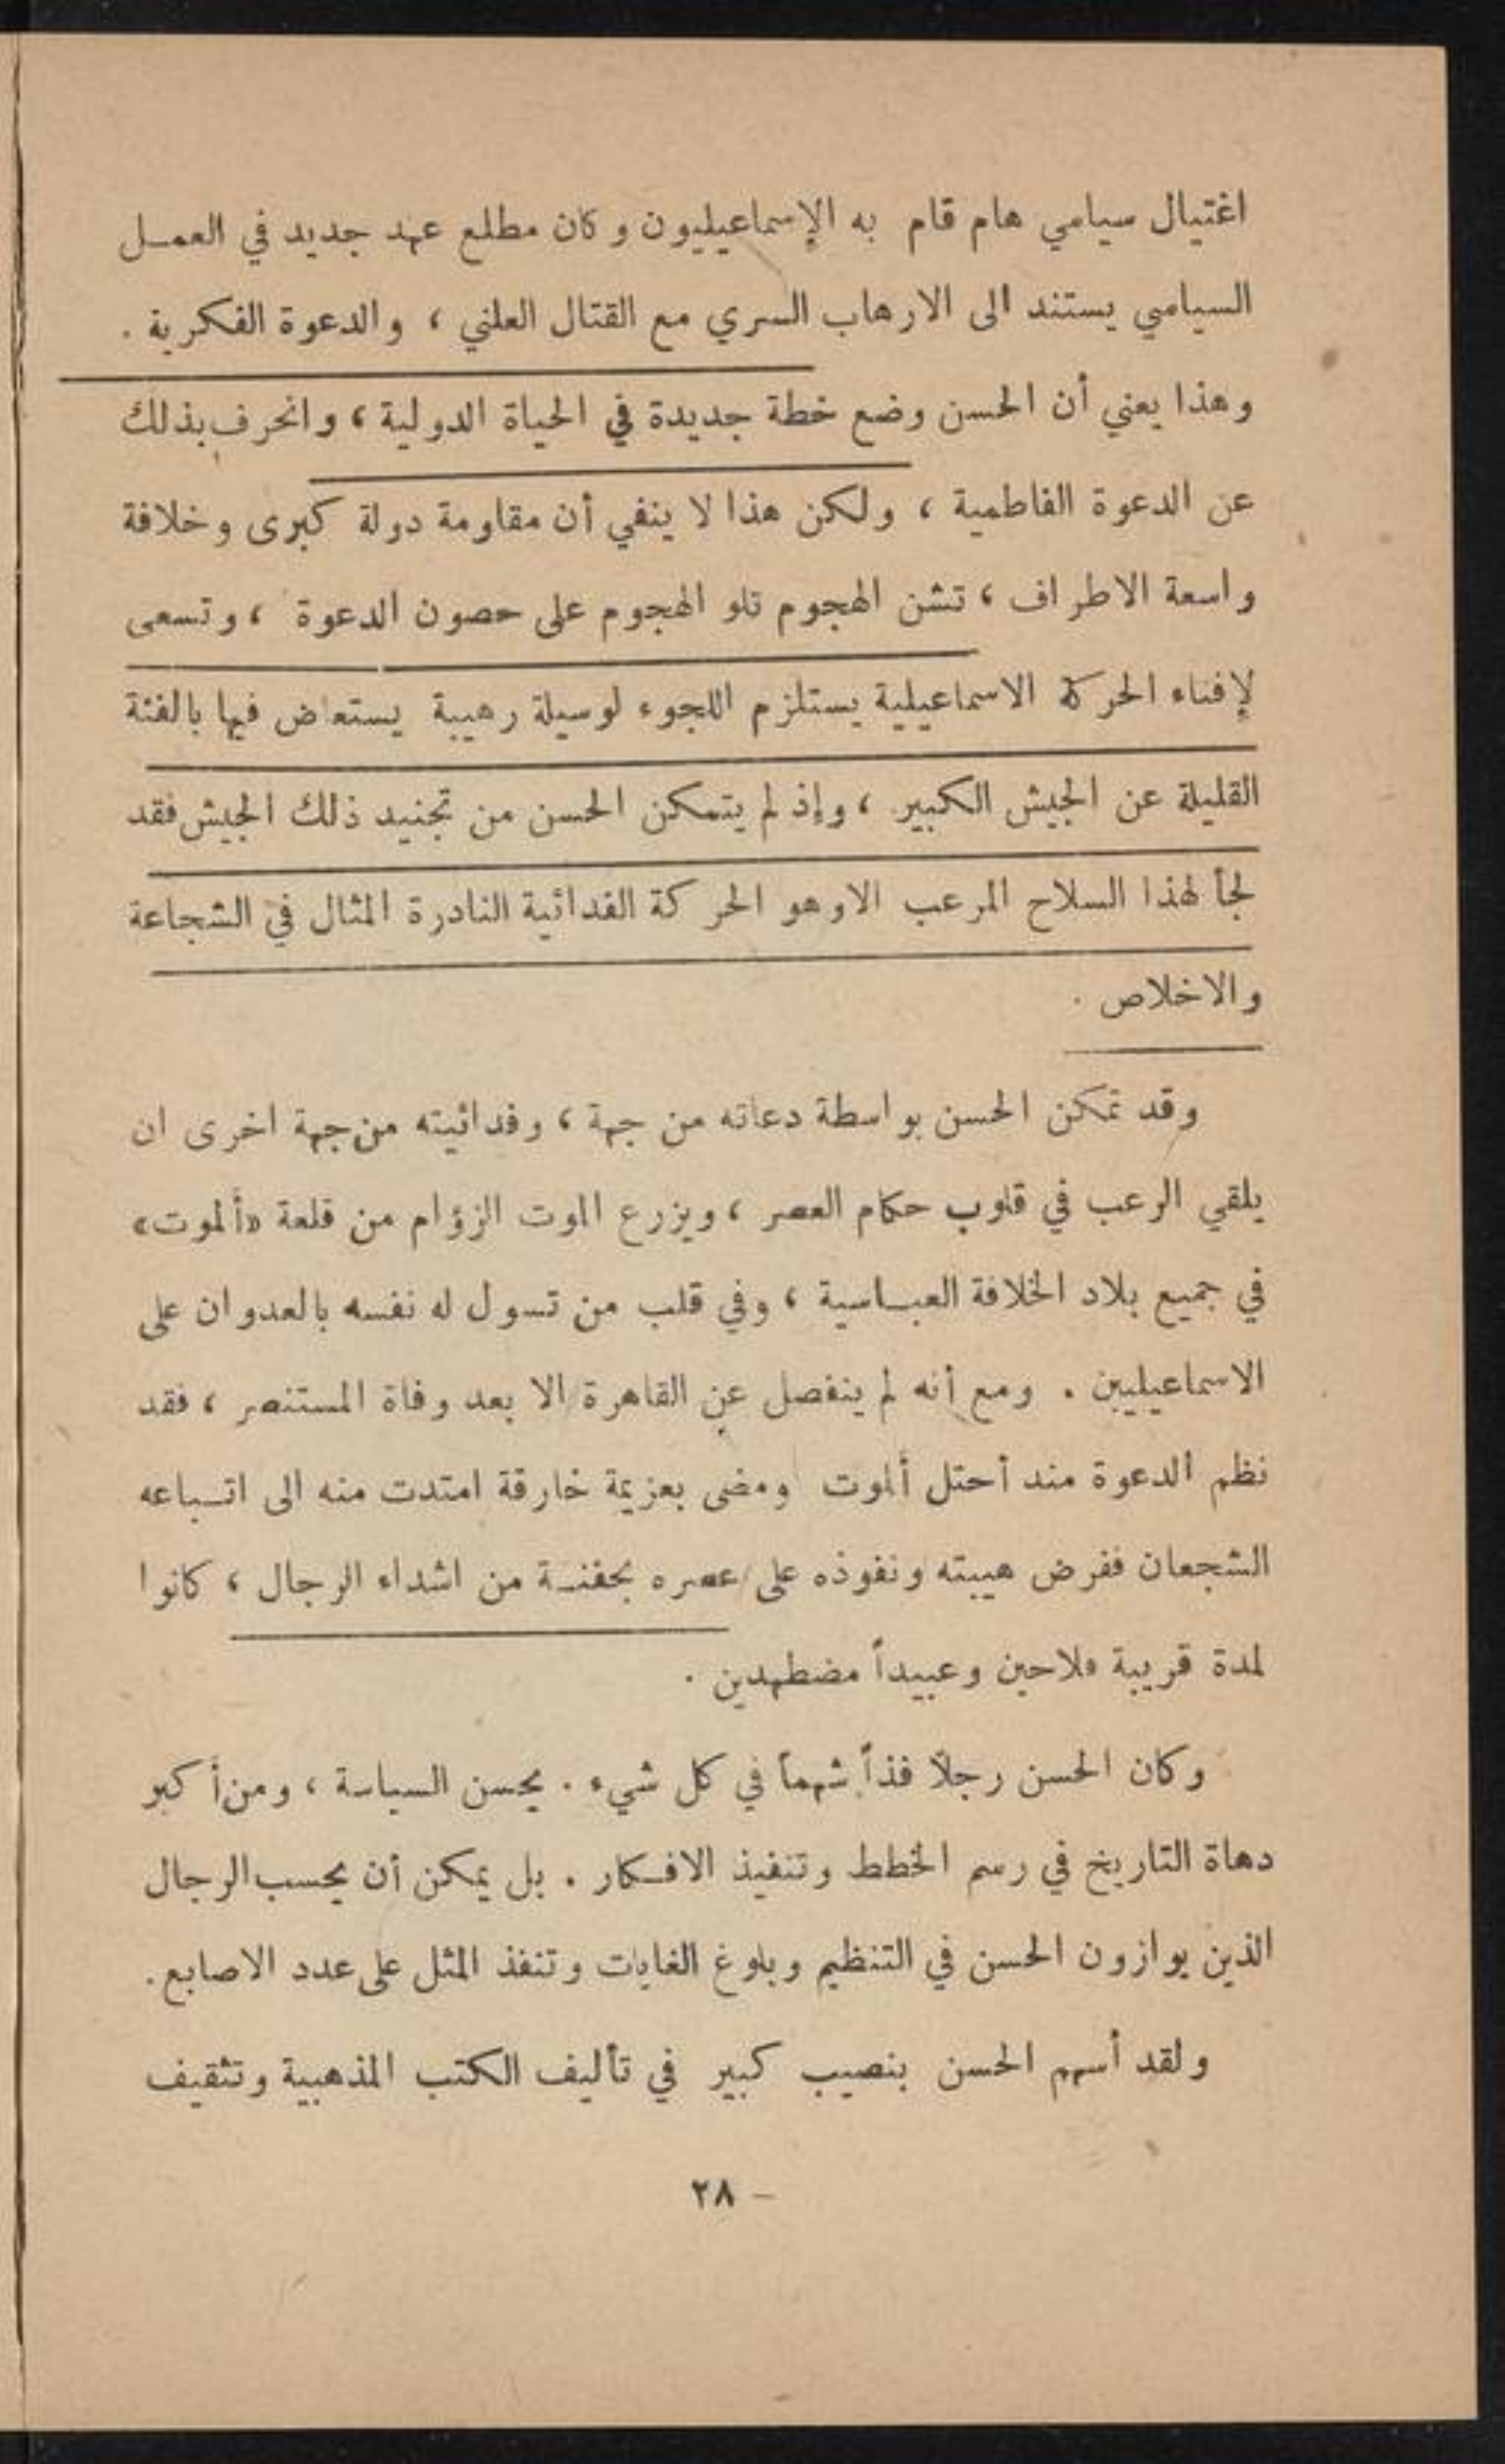 اغتيال سياسي هام قام به الإسماعيليون وكان مطلع عهد جديد في العمـل
السياسي يستند الى الارهاب السري مع القتال العلني ، والدعوة الفكرية .
وهذا يعني أن الحسن وضع خطة جديدة في الحياة الدولية ، وانحرف بذلك
عن الدعوة الفاطمية ، ولكن هذا لا ينفي أن مقاومة دولة كبرى وخلافة
واسعة الاطراف ، تشن الهجوم تلو الهجوم على حصون الدعوة ، وتسعى
لإفناء الحركة الاسماعيلية يستلزم اللجوء لوسيلة رهيبة يستعاض فيها بالفئة
القليلة عن الجيش الكبير ، وإذ لم يتمكن الحسن من تجنيد ذلك الجيش فقد
لجأ لهذا السلاح المرعب الا وهو الحركة الفدائية النادرة المثال في الشجاعة
والاخلاص .
وقد تمكن الحسن بواسطة دعاته من جهة ، وفدائيته من جهة اخرى ان
يلقي الرعب في قلوب حكام العصر ، ويزرع الموت الزؤام من قلعة «ألموت»
في جميع بلاد الخلافة العبـاسية ، وفي قلب من تسول له نفسه بالعدوان على
الاسماعيليين . ومع أنه لم ينفصل عن القاهرة الا بعد وفاة المستنصر ، فقد
نظم الدعوة مند أحتل ألموت ومضى بعزيمة خارقة امتدت منه الى اتـباعه
الشجعان ففرض هيبته ونفوذه على عصره بحفنـة من اشداء الرجال ، كانوا
لمدة قريبة فلاحين وعبيداً مضطهدين .
وكان الحسن رجلاً فذاً شهماً في كل شيء . يحسن السياسة ، ومن أكبر
دهاة التاريخ في رسم الخطط وتنفيذ الافـكار . بل يمكن أن يحسب الرجال
الذين يوازون الحسن في التنظيم وبلوغ الغايات وتنفذ المثل على عدد الاصابع.
ولقد أسهم الحسن بنصيب كبير في تأليف الكتب المذهبية وتثقيف
– ٢٨